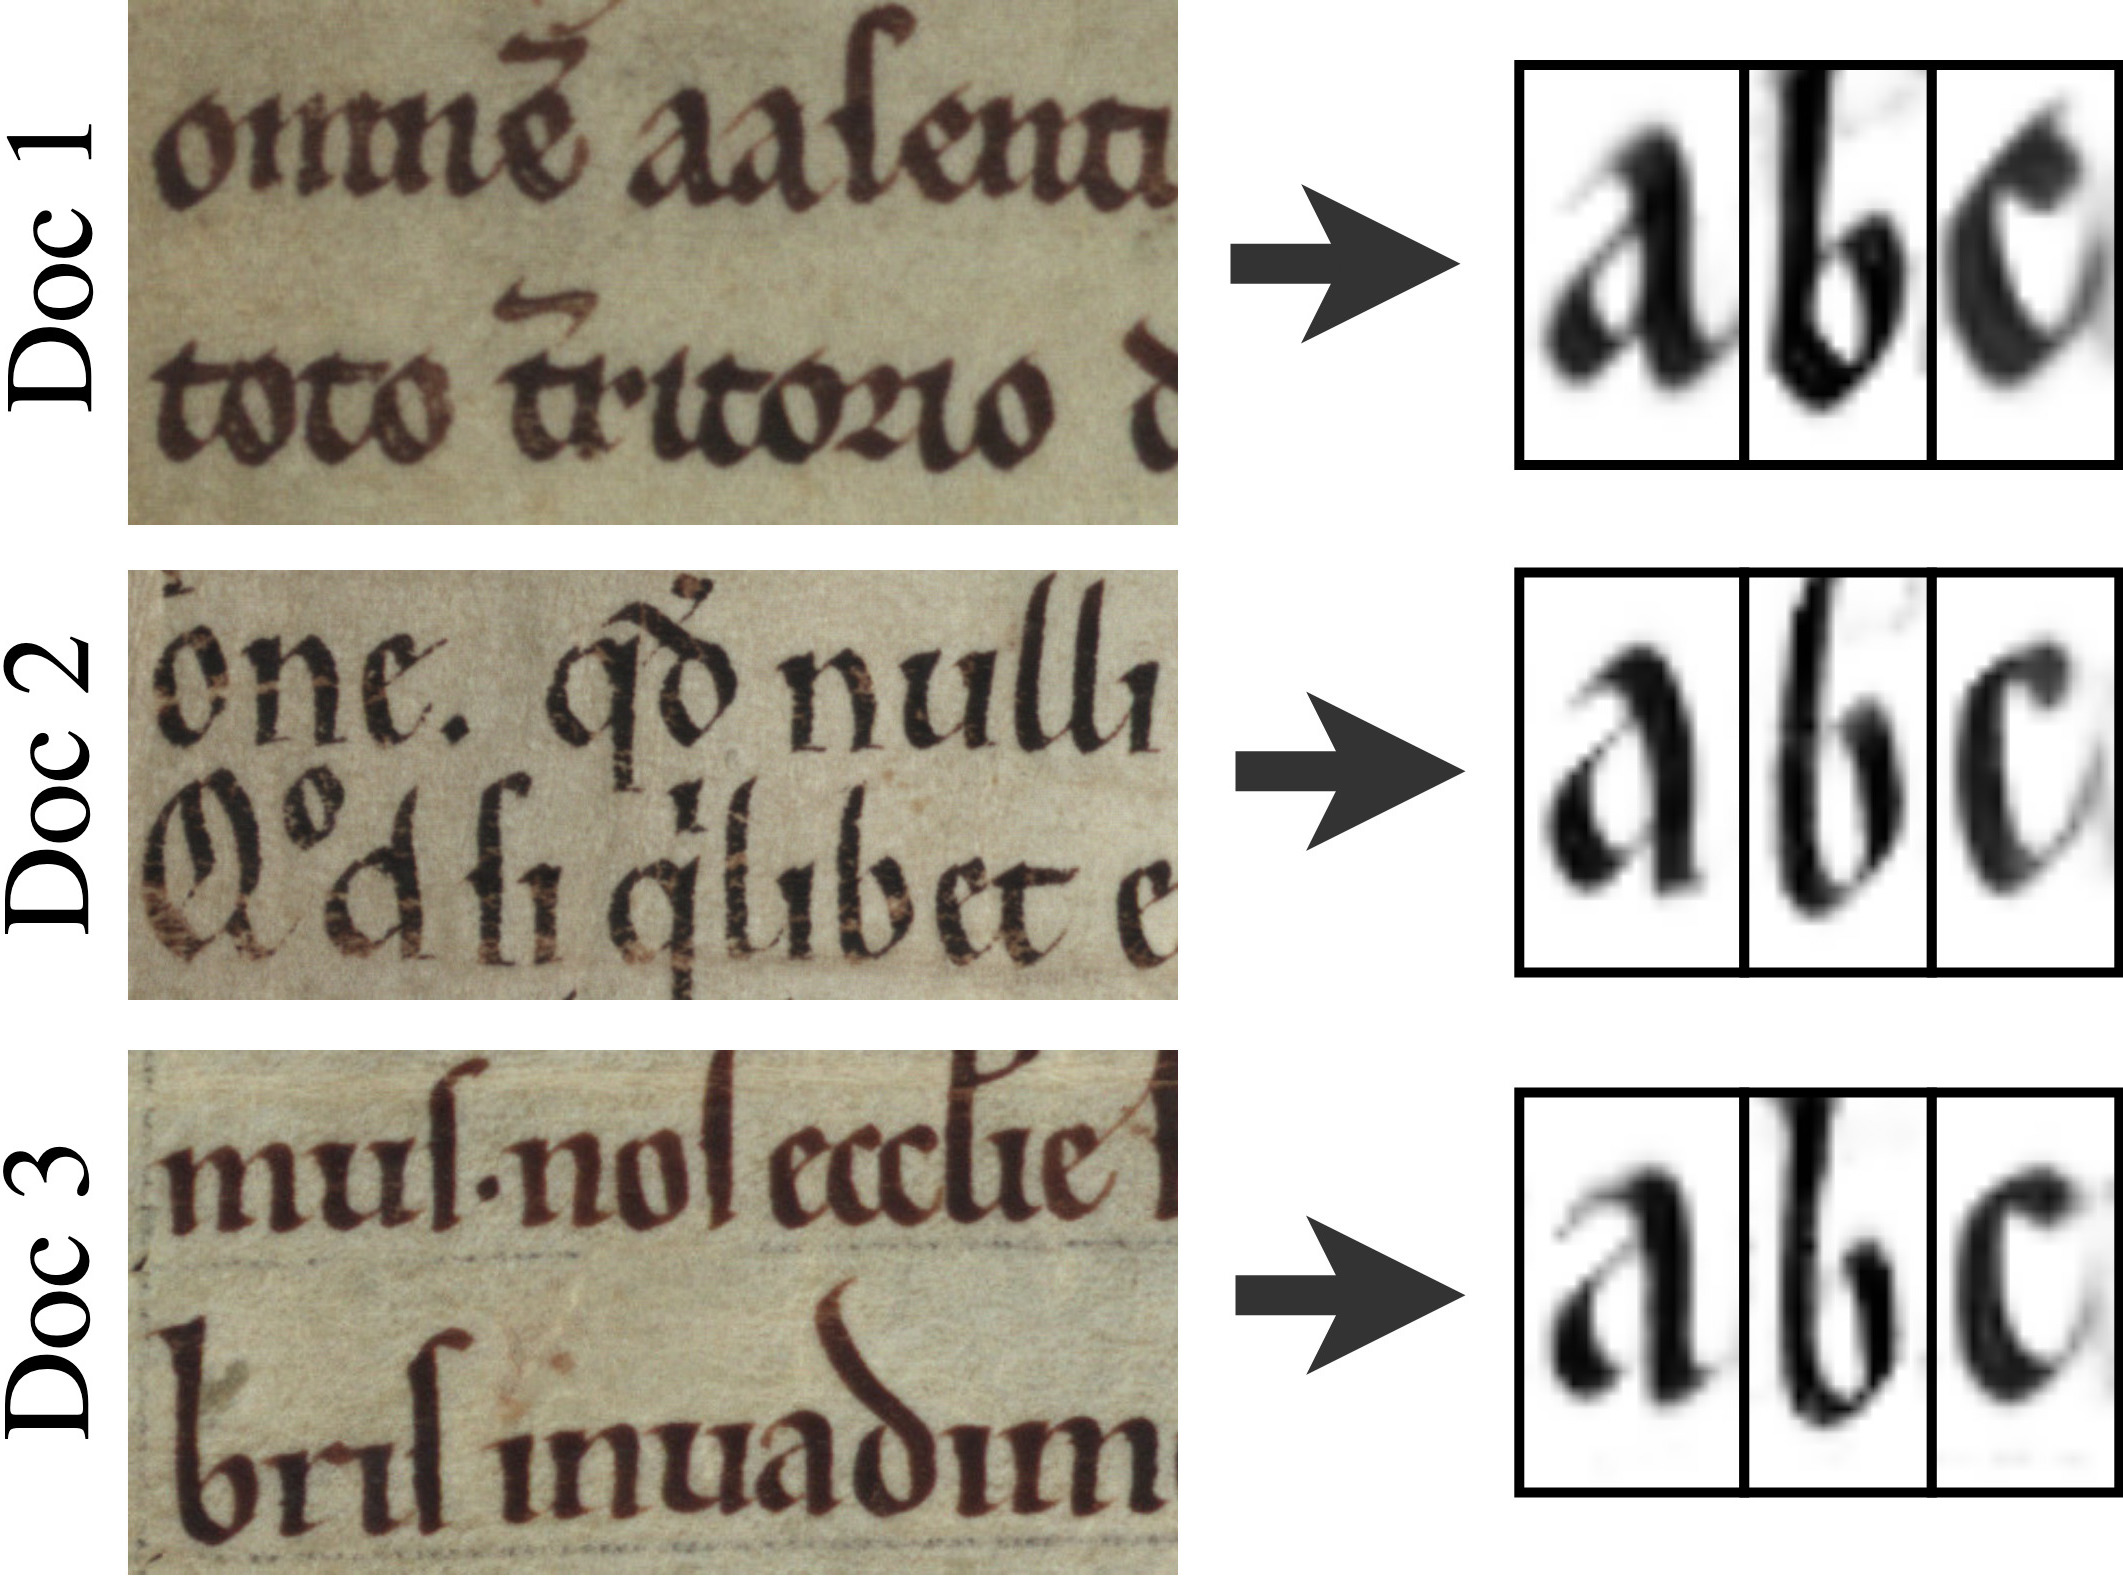 Doc 1
omnē aaſenti
toto t̄ritorio d
a b c
Doc 2
one. qd nulli
Qod ſi qlibet e
a b c
Doc 3
muſ·noſ eccl̄ie
briſ inuadim
a b c